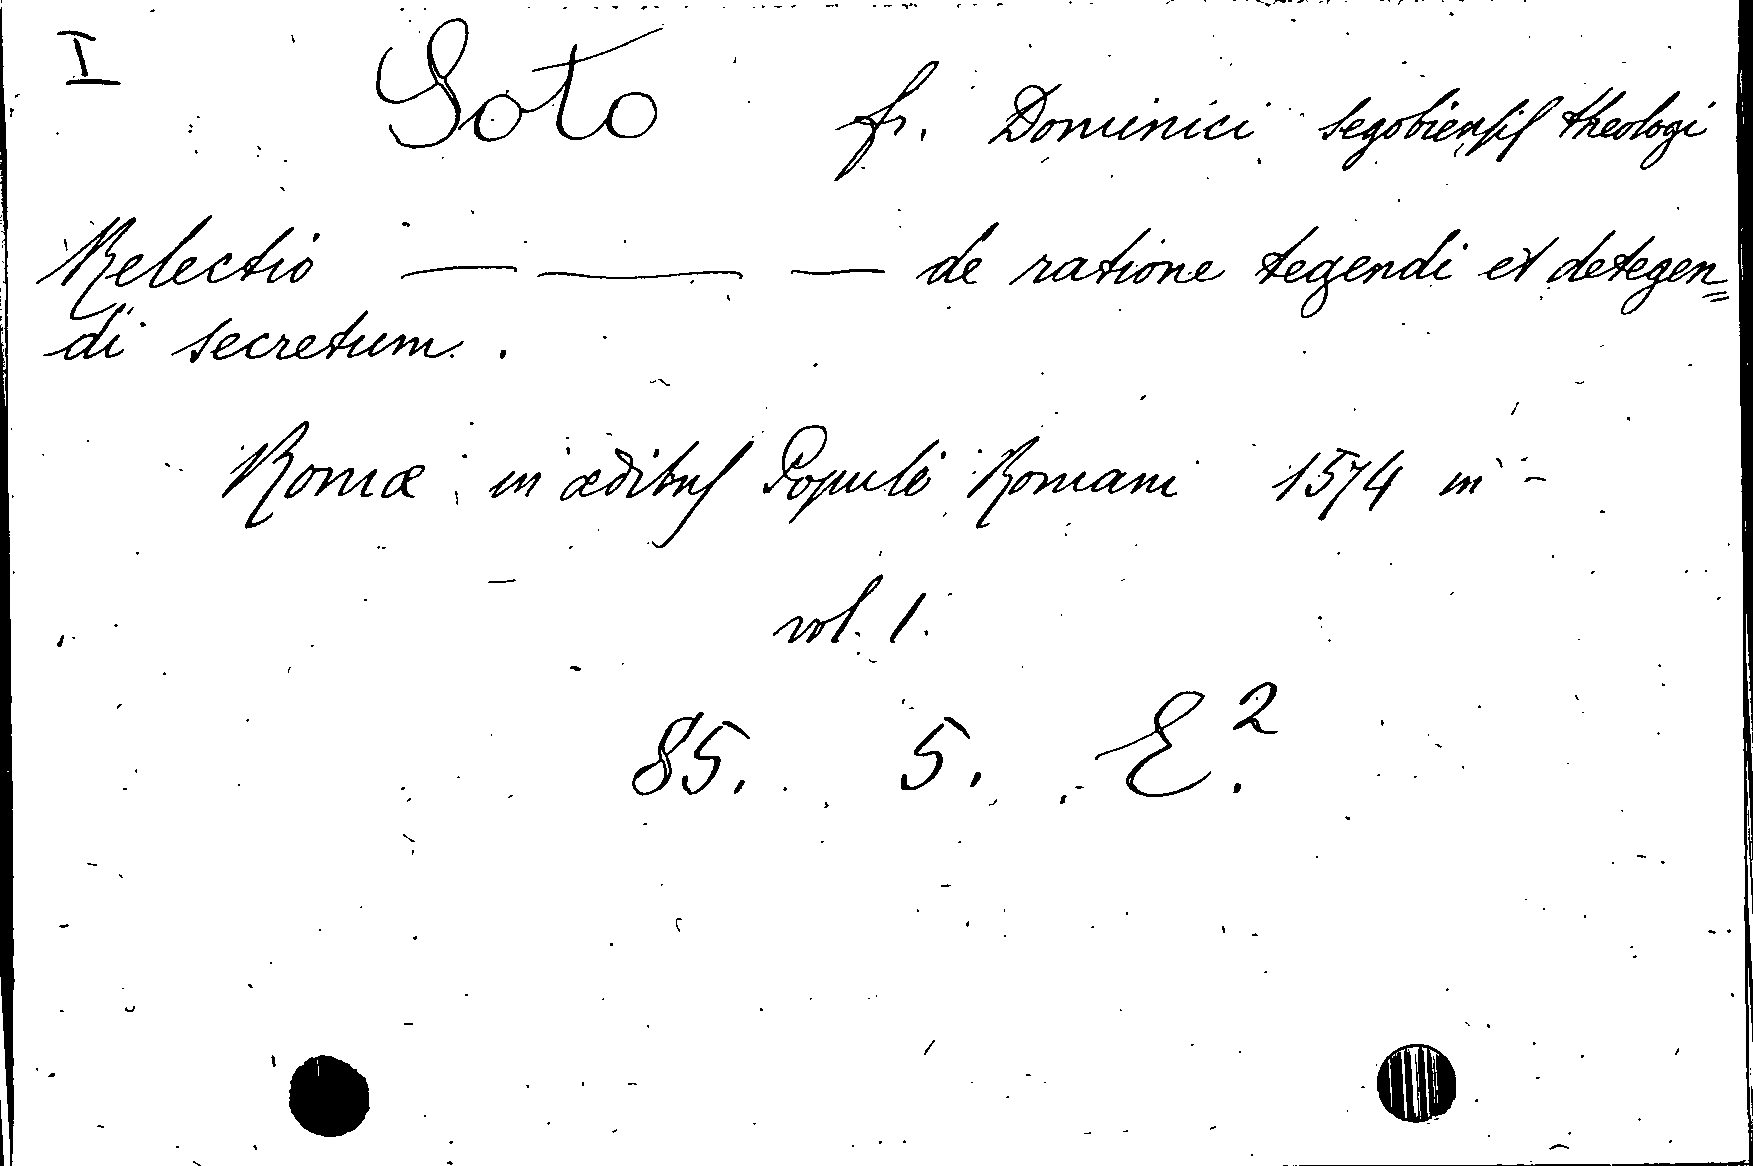 I Soto fr. Dominici segobiensis theologi
Relectio — — — de ratione tegendi et detegen=
di secretum.
Romæ in ædibus Populi Romani 1574 in -
vol. 1.
85. 5. E.²